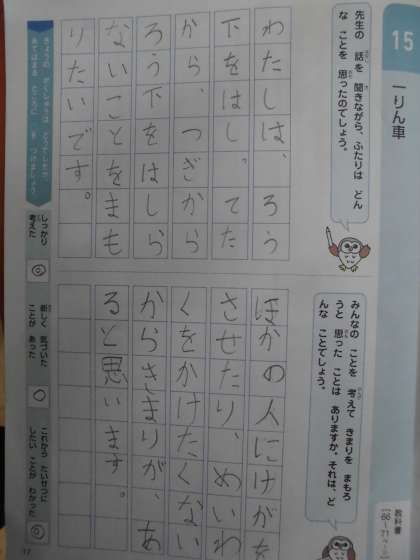 15
一りん車
教科書
【66～71ページ】
先生の 話を 聞きながら、ふたりは どん
な ことを 思ったのでしょう。
わたしは、ろう
下をはし、てた
から、つぎから
ろう下をはしら
ないことをまも
りたいです。
みんなの ことを 考えて きまりを まもろ
うと 思った ことは ありますか。それは、ど
んな ことでしょう。
ほかの人にけがを
させたり、めいわ
くをかけたくない
からきまりが、あ
ると思います。
きょうの がくしゅうは どうでしたか。
しっかり
考えた
新しく 気づいた
ことが あった
これから たいせつに
したい ことが わかった
17